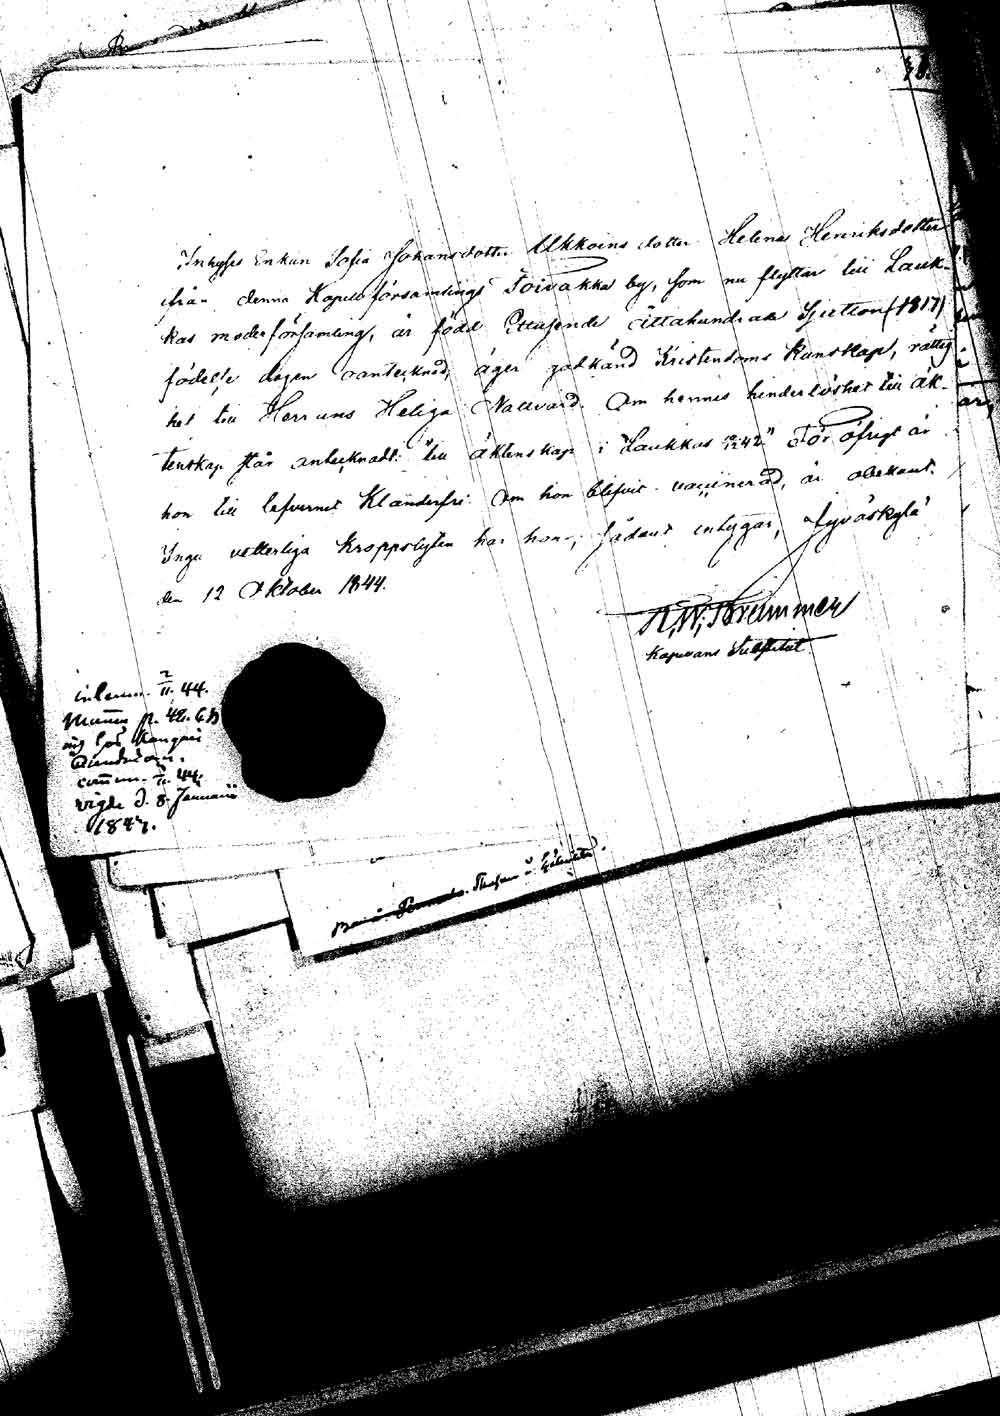 Inhyses Enkan Sofia Johansdotter Ukkoins dotter Helena Henriksdotter
ifrån denna Kapellförsamlings Toivakka by, som nu flyttar till Lauk-
kas moderförsamling, är född Ettusende åttahundrade Sjutton (1817)
födelse dagen oantecknad, äger godkänd Kristendoms kunskap, rättig-
het till Herrans Heliga Nattvard. Om hennes hinderlöshet till äk-
tenskap står antecknadt: "till äktenskap i Laukkas 42" För öfrigt är
hon till lefvernet Klanderfri. Om hon blefvit vaccinerad, är obekant.
Inga vetterliga kroppslyten har hon; sådant intygar, Jyväskylä
den 12 Oktober 1844.
K. W. Brummer
Kapellans Substitut.
II. 44.
p. 42.
comm. II. 44.
vigde d. 8. Januarii